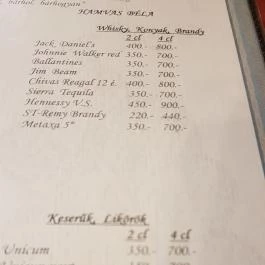 bárhol, bárhogyan"
HAMVAS BÉLA
Whisky, Konyak, Brandy
2 cl 4 cl
Jack Daniel's 400.- 800.-
Johnnie Walker red 350.- 700.-
Ballantines 350.- 700.-
Jim Beam 350.- 700.-
Chivas Reagal 12 é. 400.- 800.-
Sierra Tequila 350.- 700.-
Hennessy V.S. 450.- 900.-
ST-Remy Brandy 220.- 440.-
Metaxa 5* 350.- 700.-
Keserűk, Likőrök
2 cl 4 cl
Unicum 350.- 700.-
350.- 700.-